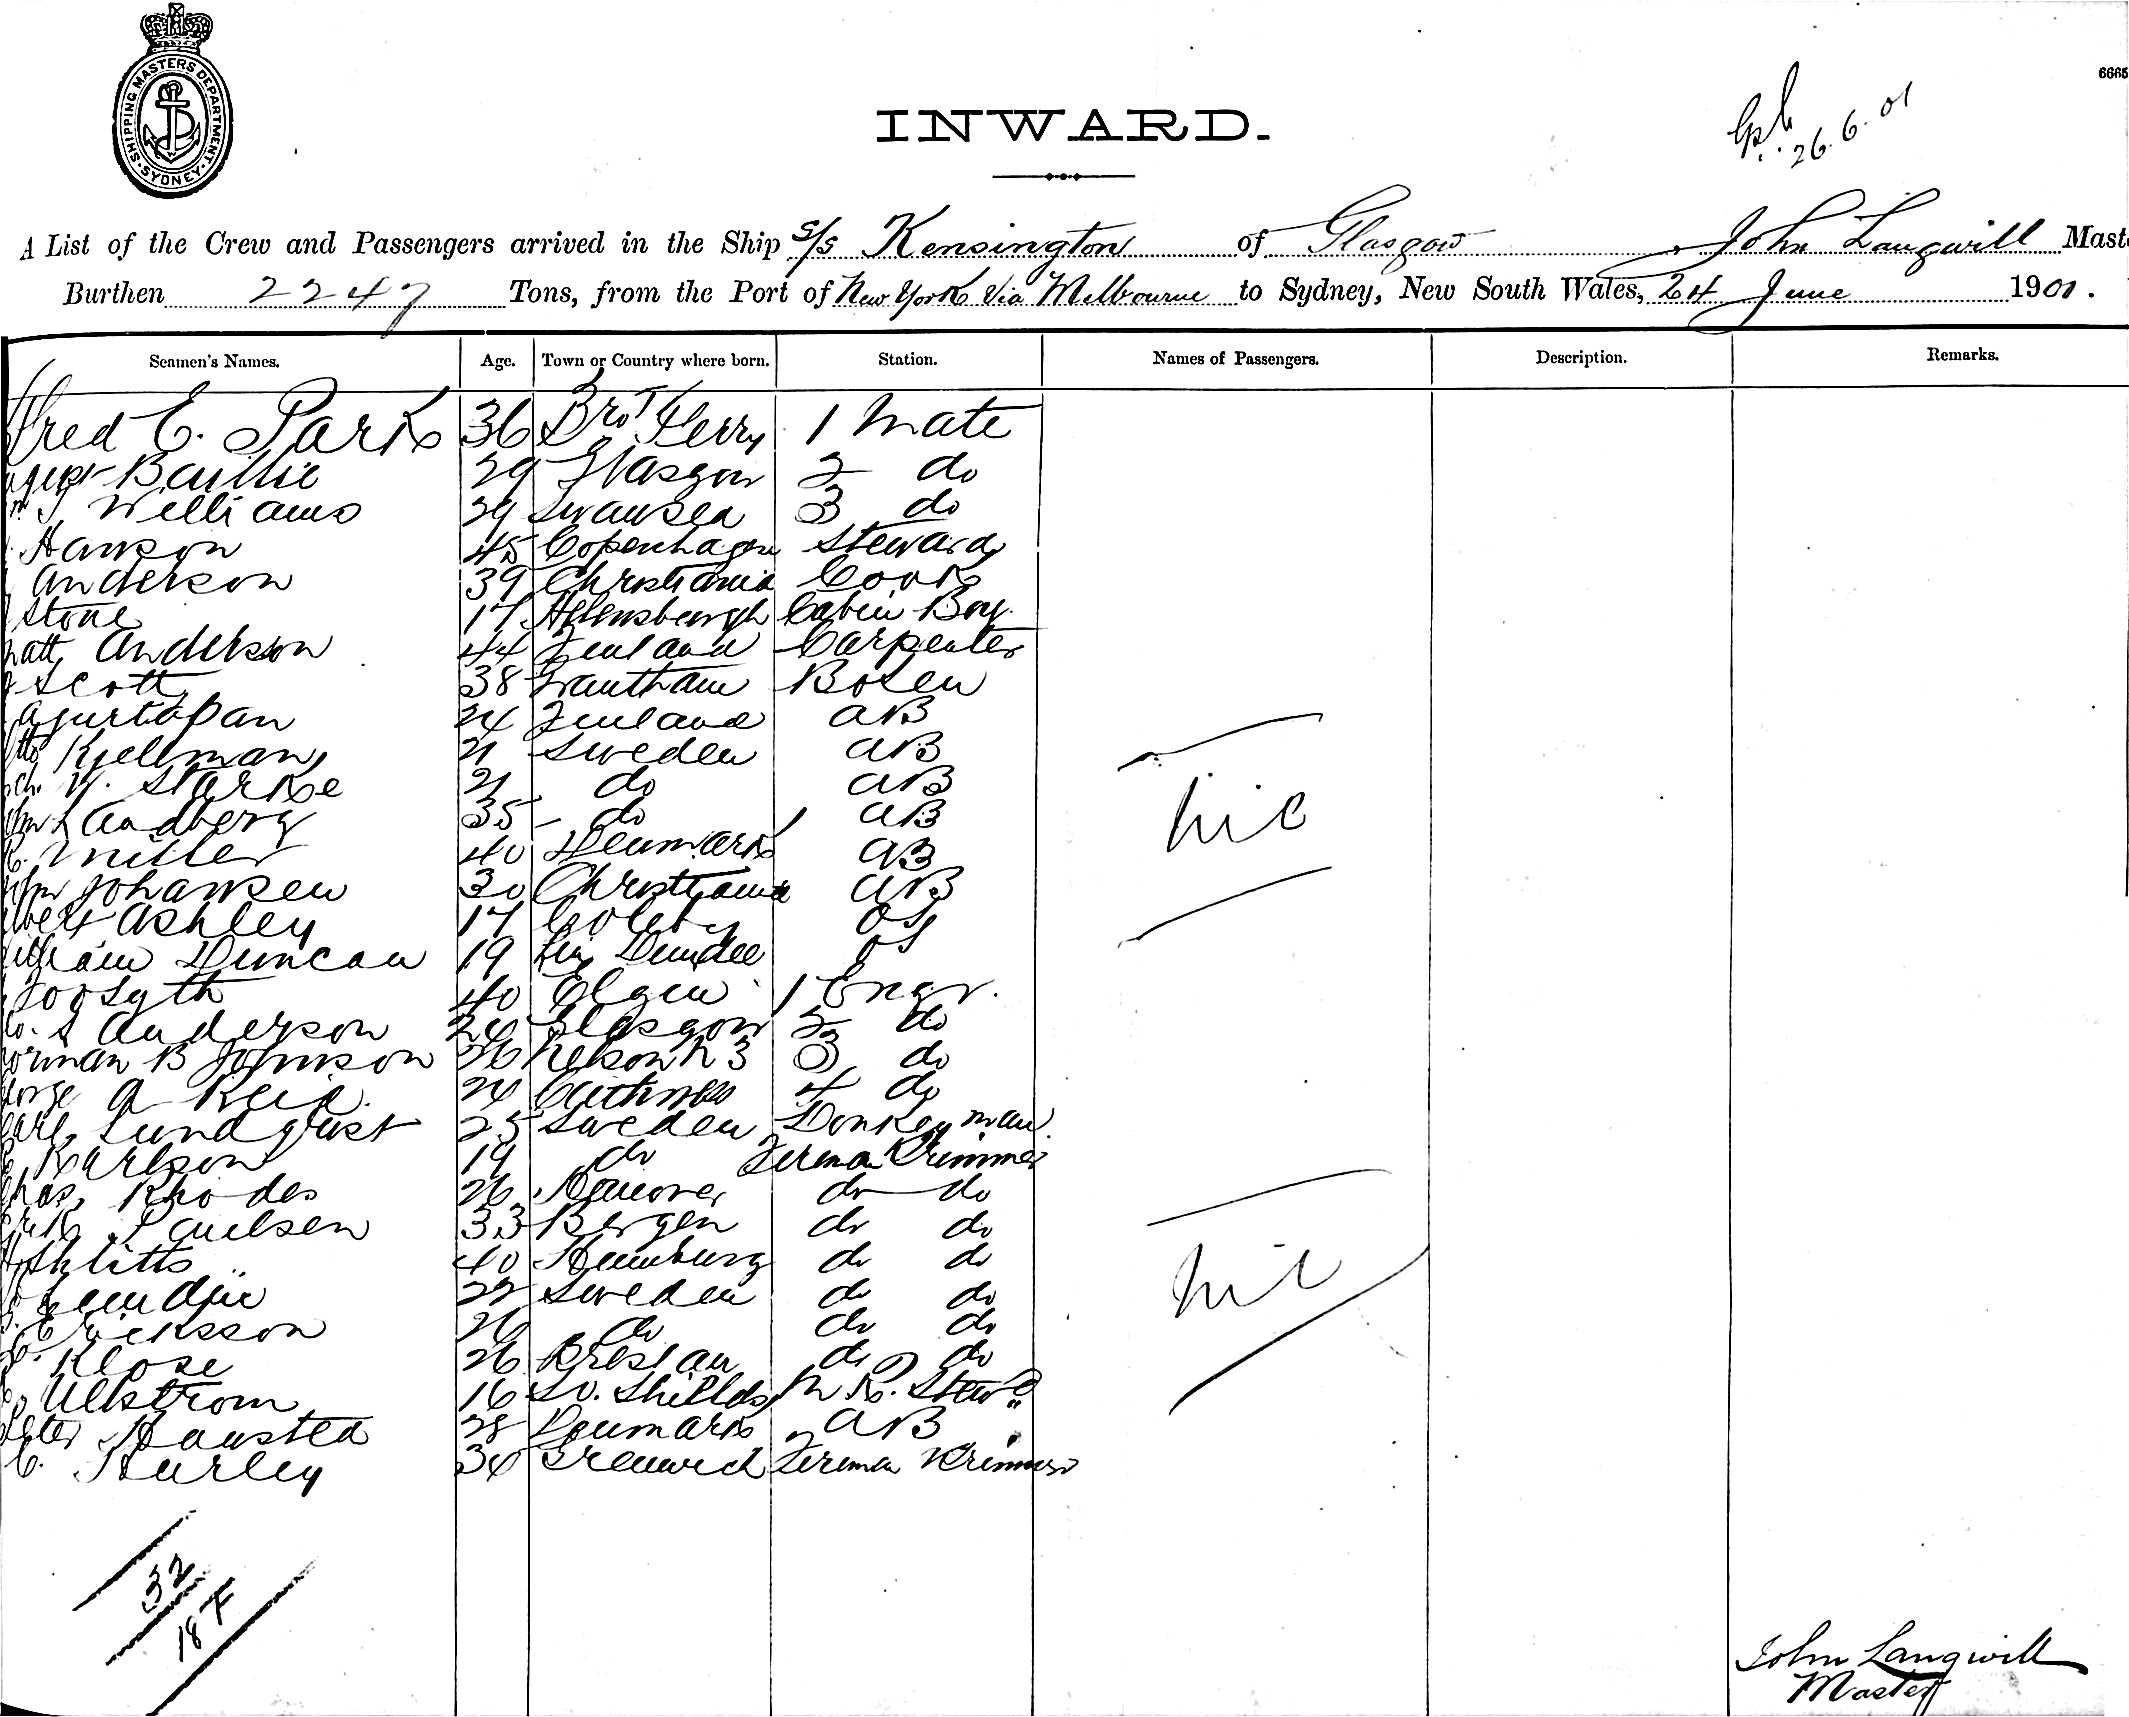 SHIPPING MASTERS DEPARTMENT · SYDNEY ·
6665
INWARD.
26.6.01
A List of the Crew and Passengers arrived in the Ship s/s Kensington of Glasgow, John Langwill Mast
Burthen 2247 Tons, from the Port of New York Via Melbourne to Sydney, New South Wales, 24 June 1901.
Seamen's Names. Age. Town or Country where born. Station. Names of Passengers. Description. Remarks.
fred E. Parks 36 Bro't Ferry 1 Mate
Baillie 29 Glasgow 2 do
J Williams 39 Swansea 3 do
Hanson 45 Copenhagen Steward
Anderson 39 Christiania Cook
Stone 17 Helensburgh Cabin Boy
Matt Anderson 44 Finland Carpenter
Scott 38 Grantham Bosen
24 Finland AB
Otto Kjellman 21 Sweden AB
W. Starke 21 do AB
Sandberg 35 do AB
Miller 40 Denmark AB
John Johansen 30 Christiania AB
Ashley 17 OS
William Duncan 19 Dundee OS
Forsyth 40 Elgin 1 Engr.
S Anderson 24 Glasgow 2 do
orman B Johnson 26 Nelson N Z 3 do
orge A Reid. 24 Caithness 4 do
Carl Lundqvist 25 Sweden Donkeyman
Karlson 19 do Fireman Trimmer
Chas. Rhodes 26 Hanover do do
Paulsen 33 Bergen do do
40 Hamburg do do
22 Sweden do do
Ericksson 26 do do do
Klose 26 Breslau do do
Ulkstrom 16 So. Shields M R. Stewd
Peter Hansted 28 Denmark AB
C. Hurley 34 Greenwich Fireman Trimmer
nil
nil
32
18 F
John Langwill
Master